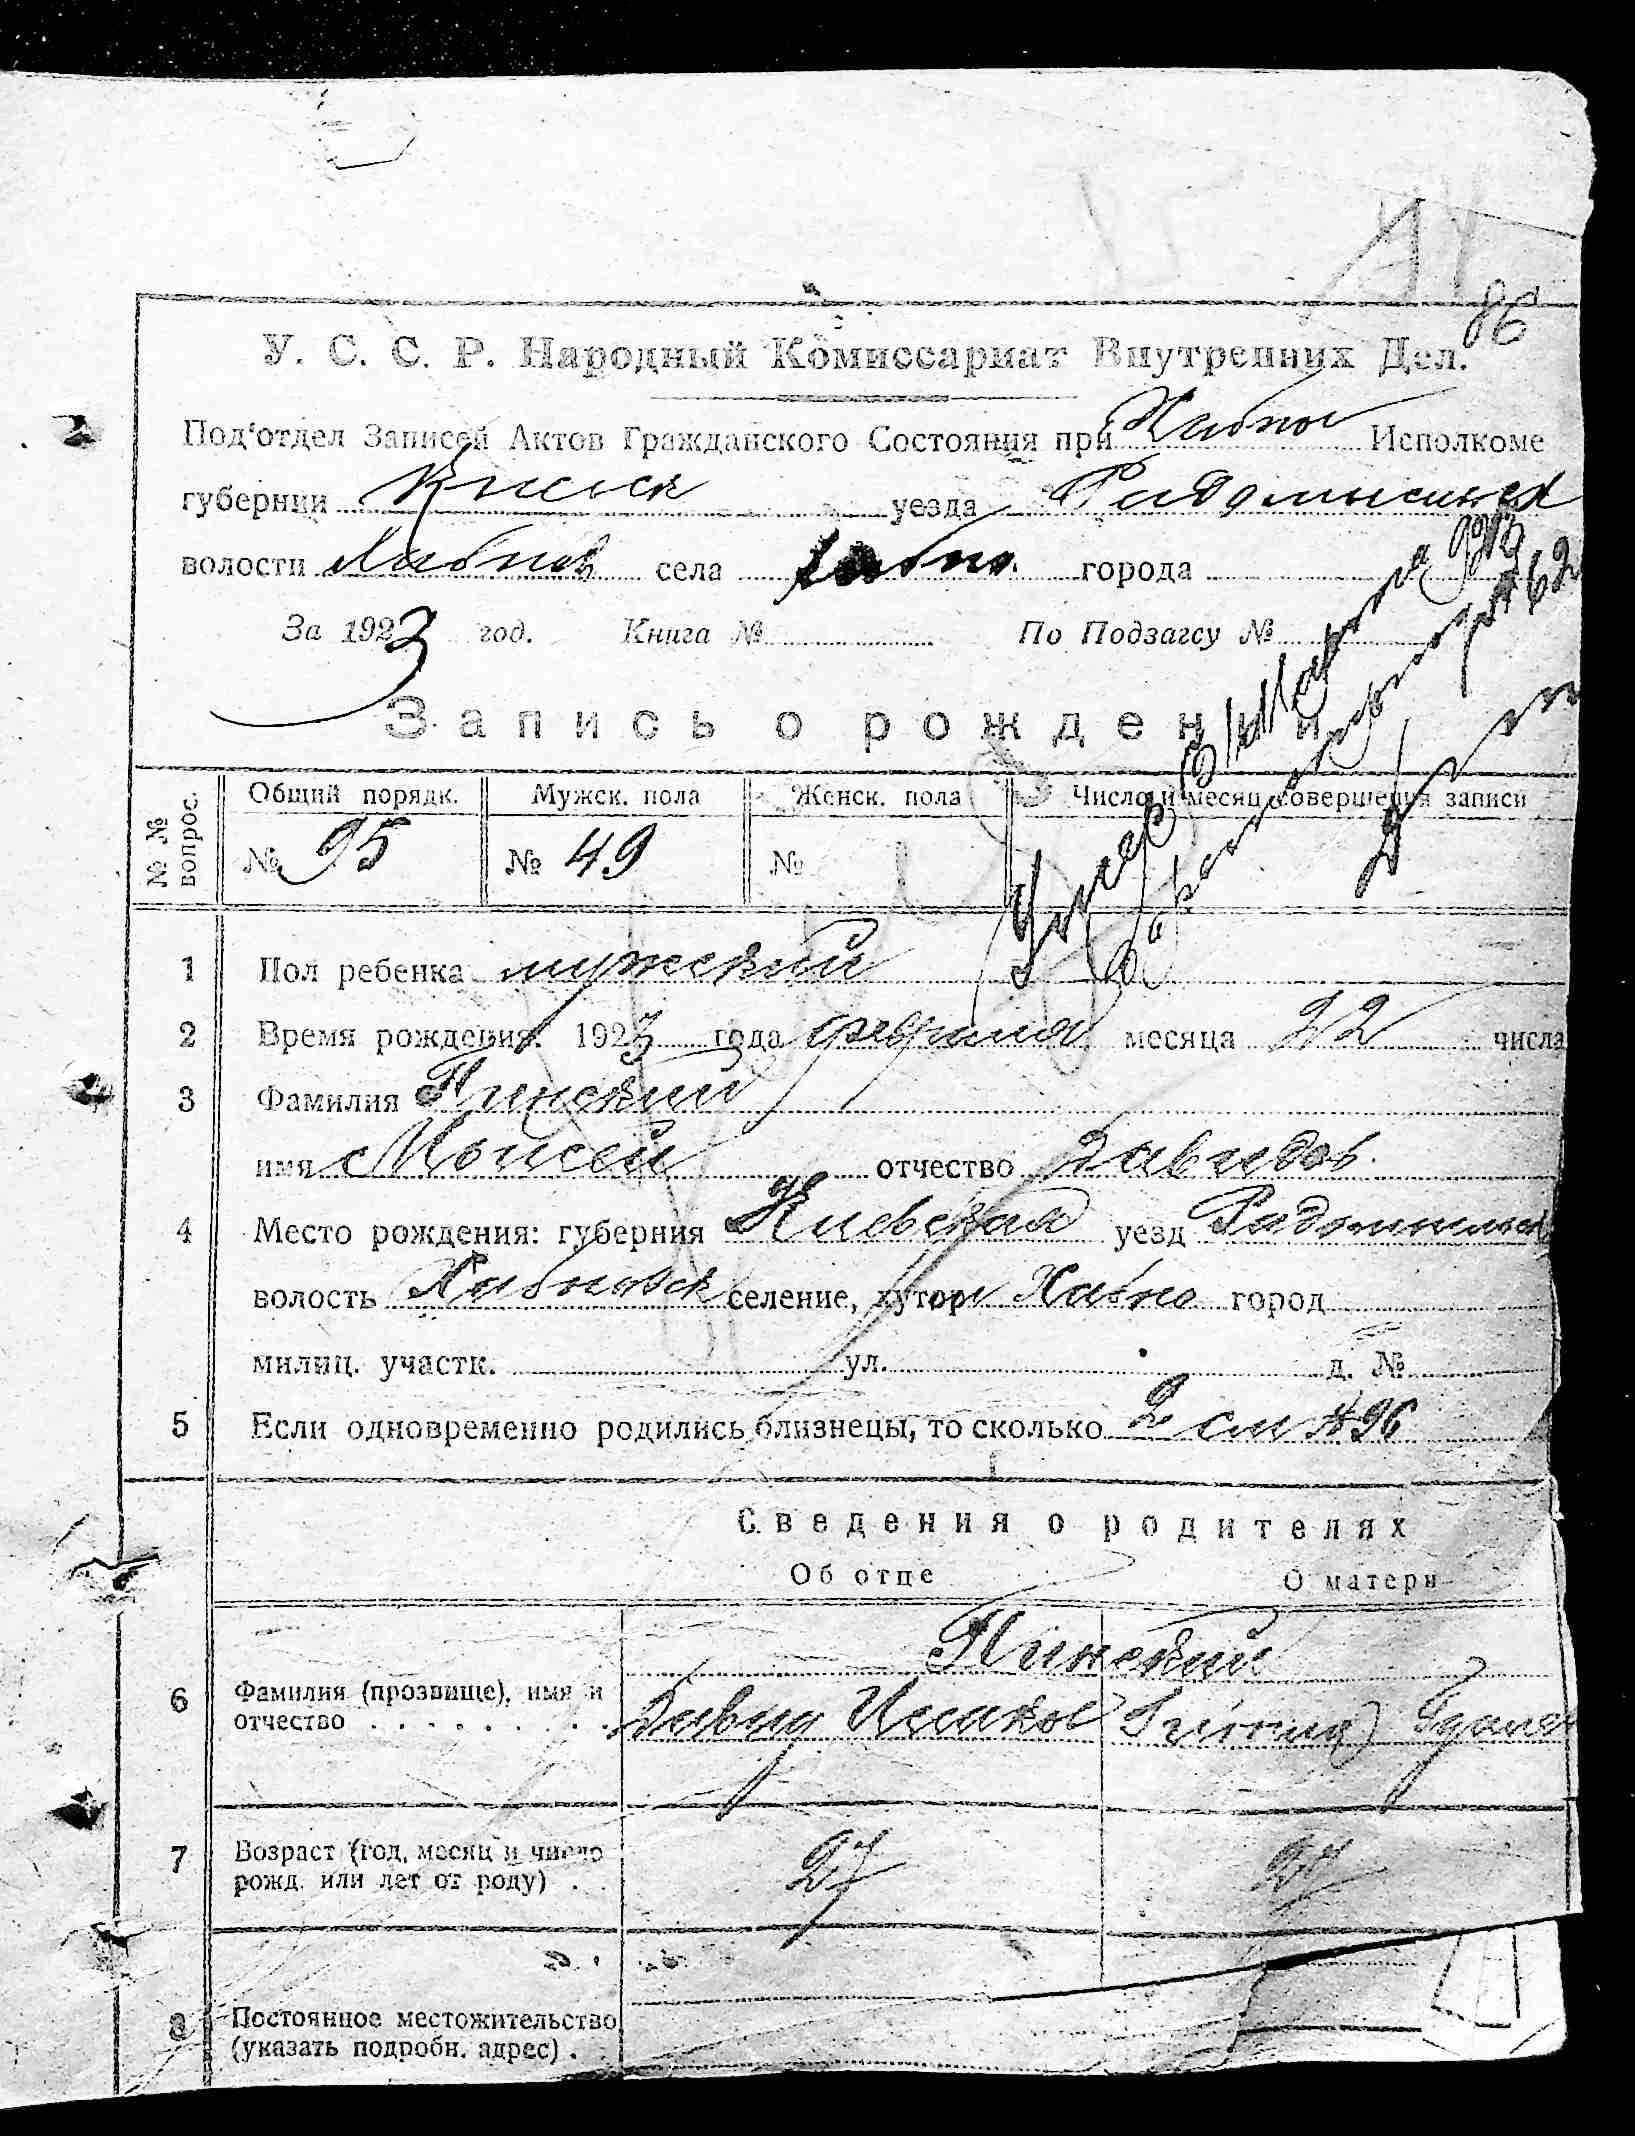 86
У. С. С. Р. Народный Комиссариат Внутренних Дел.
Под'отдел Записей Актов Гражданского Состояния при Хабно Исполкоме
губернии Киевск уезда Радомысльск
волости Хабнов села Хабно. города
За 1923 год. Книга № По Подзагсу №
Запись о рождении
№ № вопрос. Общий порядк. Мужск. пола Женск. пола Число и месяц совершения записи
№ 95 № 49 №
1 Пол ребенка мужский
2 Время рождения: 1923 года февраля месяца 22 числа
3 Фамилия Пинский
имя Мойсей отчество Давидов.
4 Место рождения: губерния Киевская уезд Радомысльск
волость Хабновск селение, хутор м Хабно город
милиц. участк. ул. д. №
5 Если одновременно родились близнецы, то сколько 2 см № 96
Сведения о родителях
Об отце О матери
Пинский
6 Фамилия (прозвище), имя и
отчество . . . . . . . . Давид Ицеков
7 Возраст (год, месяц и число
рожд. или лет от роду) . . 27 27
8 Постоянное местожительство
(указать подробн. адрес) .